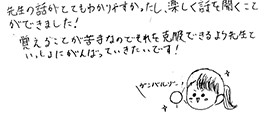 先生の話がとてもわかりやすかったし、楽しく話を聞くこと
ができました!
覚えることが苦手なのでそれを克服できるよう先生と
いっしょにがんばっていきたいです!
ガンバルゾー!